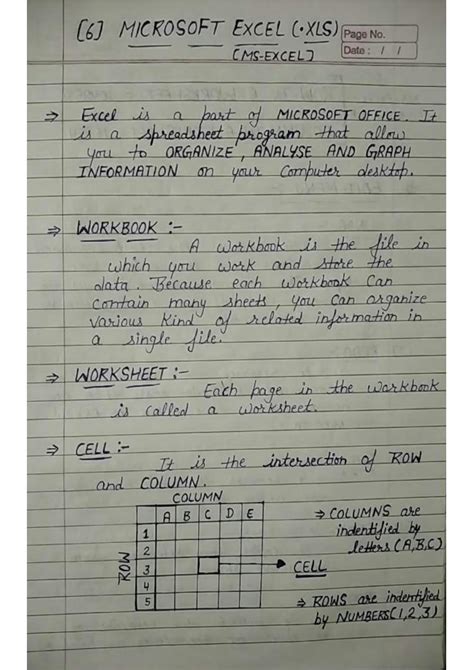 [6] MICROSOFT EXCEL (.XLS)
Page No.
Date : / /
[MS-EXCEL]
⇒ Excel is a part of MICROSOFT OFFICE. It
is a spreadsheet program that allow
you to ORGANIZE, ANALYSE AND GRAPH
INFORMATION on your Computer desktop.
⇒ WORKBOOK :-
A workbook is the file in
which you work and store the
data. Because each workbook Can
Contain many sheets, you can organize
various kind of related information in
a single file.
⇒ WORKSHEET :-
Each page in the workbook
is called a worksheet.
⇒ CELL :-
It is the intersection of ROW
and COLUMN.
COLUMN
A B C D E
1
2
3
4
5
ROW
→ CELL
⇒ COLUMNS are
indentified by
letters (A,B,C)
⇒ ROWS are indentified
by NUMBERS(1,2,3)